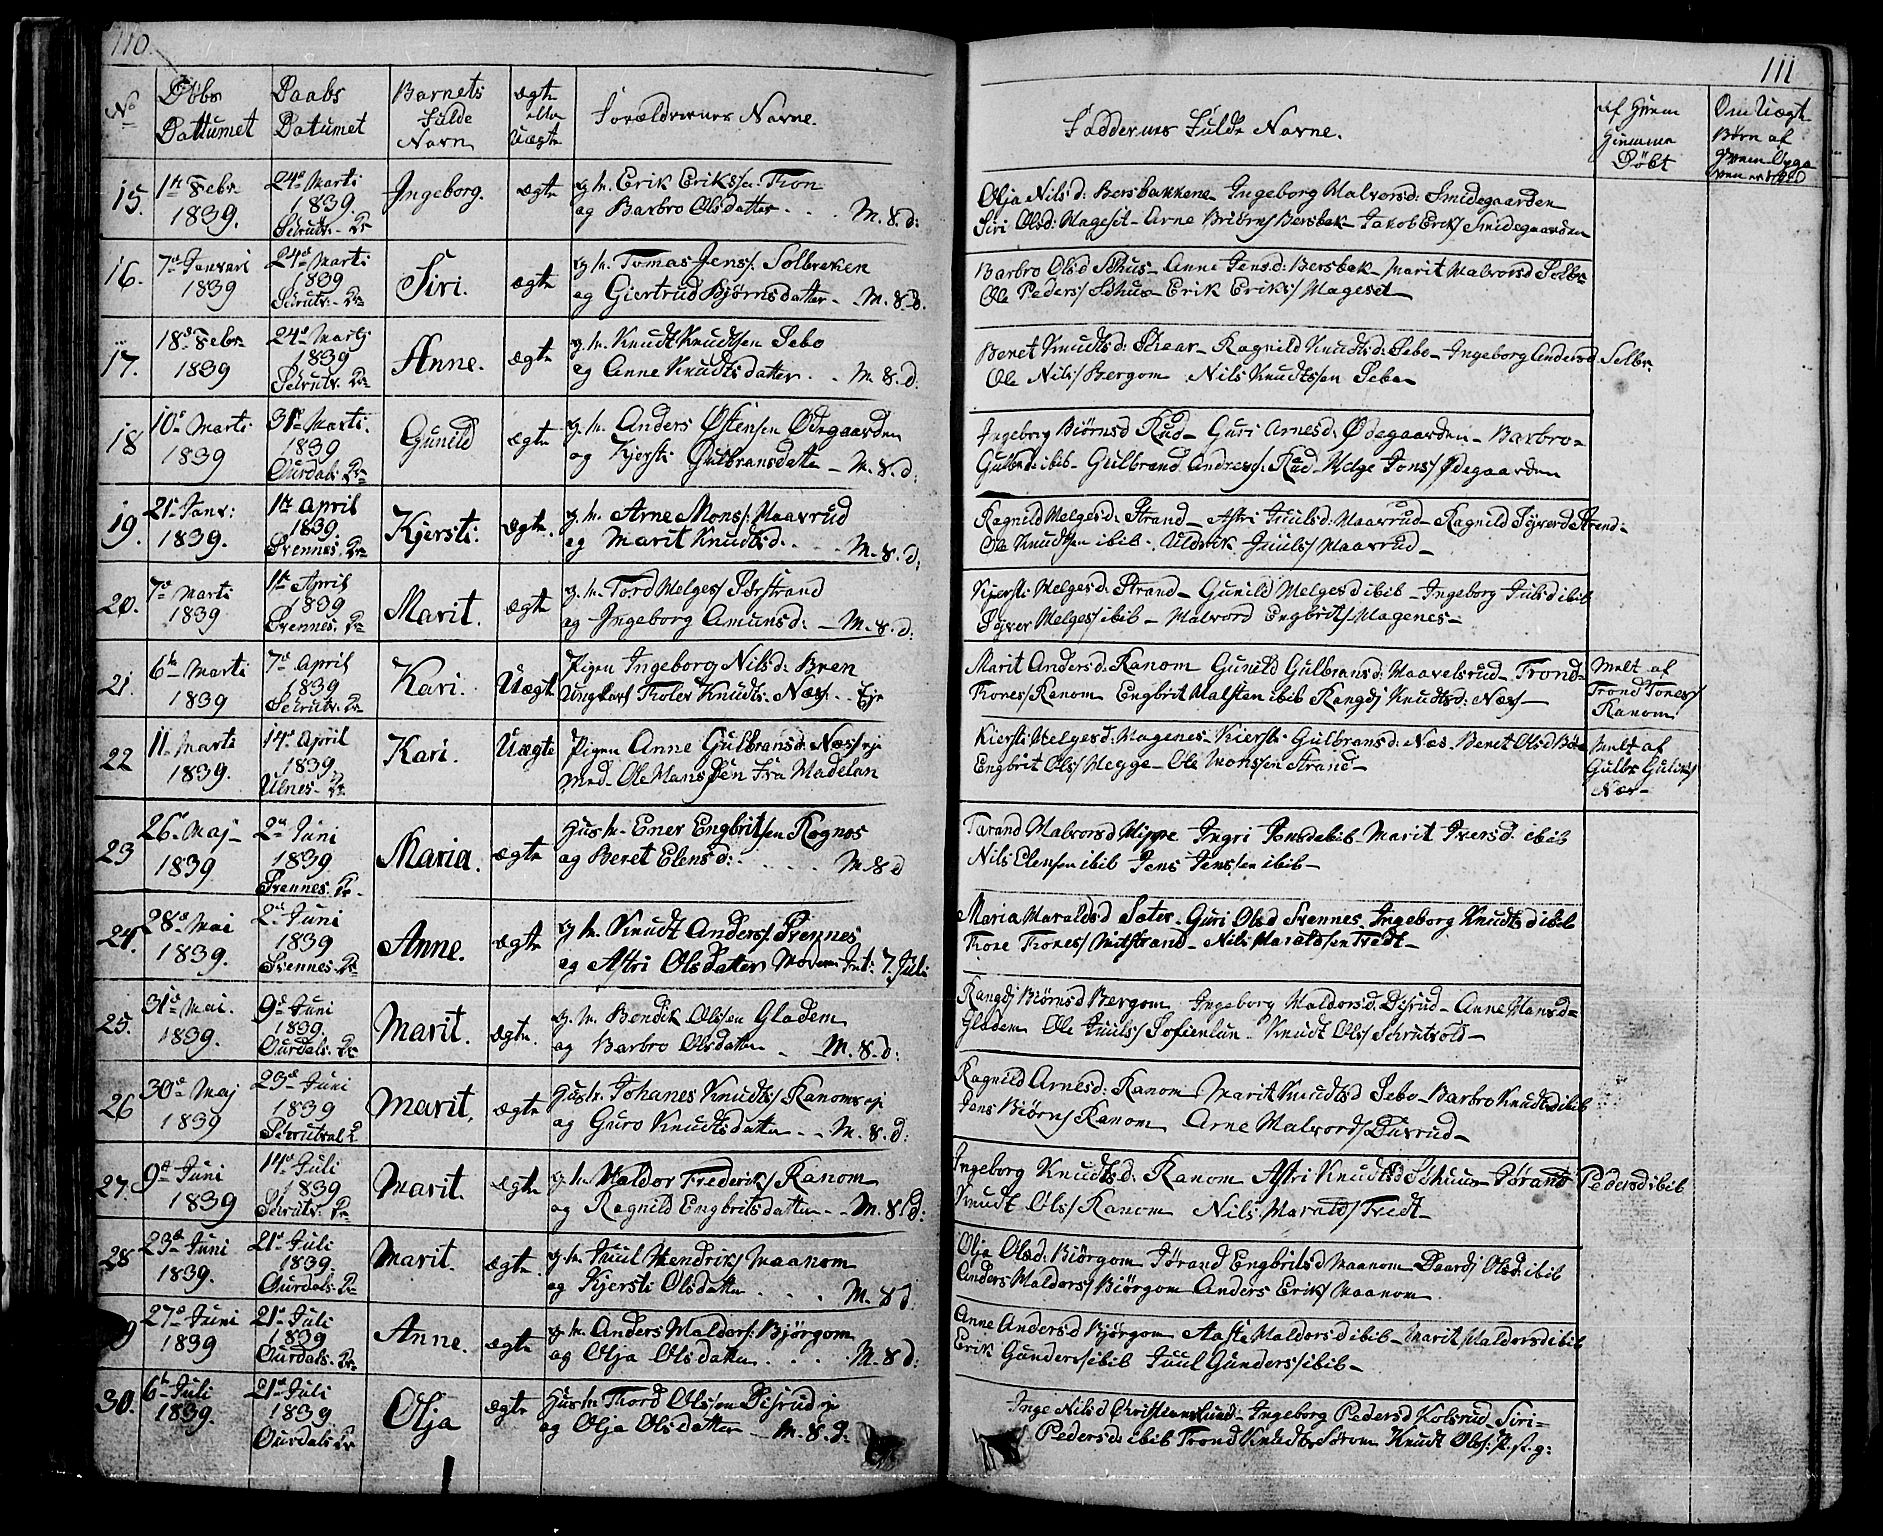 110.
No
Døbs
Dattumet
Daabs
Datumet
Barnets
Fulde
Navn
ægte
eller
Uægte
Forældrernes Navne.
15.
1te Febr.
1839.
24de Marti
1839
Scrutv. Kr
Ingeborg.
ægte
g. m. Erik Eriksen Fron
og Barbro Olsdatter . . . M. 8. d:
16.
7de Januari
1839
24de Marti
1839
Scrutv. Kr
Siri.
ægte
g. m. Tomas Jens/: Solbreken
og Giertrud Bjørnsdatter - M. 8. d.
17.
18de Febr.
1839
24de Martj
1839
Scrutv. Kr
Anne.
ægte
g. m. Knudt Knudtsen Sebo
og Anne Knudtsdatter . . M. 8. d.
18
10de Marti
1839
31te Marti.
1839
Ourdals. Kr
Gunild
ægte
g. m. Anders Østensen Ødegaarden
og Kjersti Gulbransdatte - M. 8. d:
19.
21de Janr:
1839.
1te April
1839.
Svennes. Kr
Kjersti.
ægte.
g. m. Arne Mons/: Maavrud
og Marit Knudtsd. . . M. 8. d:
20.
7de Marti
1839
1te April
1839
Svennes. Kr
Marit.
ægte
g. m. Tord Helges/
og Ingeborg Amunsd: - M. 8. d:
21.
6te Marti
1839
7de April
1839
Scrutv. Kr
Kari.
Uægte
Pigen Ingeborg Nilsd: Bren
Ungkarl Tolev Knudts: Næs/. . Eje
22
11te Marti
1839.
14de April
1839.
Ulnes. Kr
Kari.
Uægte
Pigen Anne Gulbransd: Næs/eje
med Ole Hanssen Fra Hadelan
23
26de Maj
1839
2den Juni
1839.
Svennes. Kr
Maria.
ægte
Husm. Ener Engbritsen Rognos
og Beret Elensd: . . . M. 8 d
24.
28de Mai
1839.
2den Juni
1839
Svennes. Kr
Anne.
ægte
g. m. Knudt Anders/. Svennes
og Astri Olsdatter Moderen Int: 7. Juli
25.
31te Mai.
1839.
9de Juni
1839.
Ourdals. Kr
Marit.
ægte.
g. m. Bendik Olssen Gladem
og Barbro Olsdatter - M. 8. d:
26
30te Maj
1839
23de Juni
1839
Scrutval K
Marit.
ægte
Husm. Johanes Knudts/ Ranoms eje
og Guro Knudtsdatter - - M. 8. d:
27.
9de Juni
1839
14de Juli
1839
Scrutv. Kr
Marit.
ægte
g. m. Haldor Frederiks/ Ranom
og Ragnild Engbritsdatter - - M. 8. d:
28
23de Juni
1839.
21de Juli
1839.
Ourdals. Kr
Marit.
ægte.
g. m. Juul Hendriks/ Maanom
og Kjersti Olsdatter . . . M. 8 d.
9
27de Juni
1839
21de Juli
1839
Ourdals. Kr
Anne.
ægte
g. m. Anders Haldors/: Bjørgom
og Olja Olsdatter . . . M. 8 d:
30.
6te Juli
1839.
21de Juli
1839.
Ourdals Kr
Olja
ægte
Husm. Thord Olssen Disrud eje
og Olja Olsdatter - M. 8. d:
111
Faddernes Fulde Navne.
af Hvem
Hiemme
Døbt
Om Uægt
Børn af
Hvem Opga
ven er skeed
Olja Nilsd: Bersbakkene - Ingeborg Halvorsd: Smidegaarden
Siri Olsd: Hagesit - Arne Briørns/ Bersbak - Jakob Eriks/ Smidegaarden
Barbro Olsd Søhus - Anne Jensd: Bersbak - Marit Halvorsd Solbr-
Ole Peders/ Søhus Erik Eriks/ Hageset
Beret Knudtsd: Skear - Ragnild Knudtsd: Sebo - Ingeborg Andersd Solbr
Ole Nils/ Bergom Nils Knudtssen Sebo
Ingeborg Biørnsd Rud - Guri Arnesd: Ødegaarden - Barbro-
Gulbrd: ibib - Gulbrand Andres/. Rud Helge Jons/ Ødegaarden
Ragnild Helgesd: Strand - Astri Juulsd: Maavrud - Ragnild Syverd Strend-
Ole Knudtsen ibib - Uldrik Juuls/ Maavrud -
Kjersti Helgesd: Strand - Gunild Helgesd ibib - Ingeborg Julsd ibib
Syver Helges/ ibib - Halvord Engbrits/ Hagenes -
Marit Andersd: Ranom Gunild Gulbransd: Haavelsrud - Trond-
Tores/ Ranom Engbrit Halsten ibib Rangdj Knudtsd: Næs/ -
Melt af
Trond Tores/
Ranom
Kiersti Helgesd: Hagenes - Kiersti Gulbransd: Næs Beret Olsd Bøe
Engbrit Ols/ Hegge - Ole Monssen Strand -
Melt af
Gulbr Gulbr/
Næs -
Tørand Halvorsd Hippe Ingri Jonsd ibib Marit Iversd: ibib
Nils Elensen ibib Jens Jenssen ibib -
Maria Haraldsd Sater - Guri Olsd Svennes. Ingeborg Knudtsd ibib
Tore Tores/ Mitstrand - Nils Haraldsen Tredt -
Rangdj Biørnsd Bergom Ingeborg Haldorsd. Disrud - Anne Hansd-
Gladem Ole Juuls/ Sofienlun - Knudt Ols/ Scrutvold -
Ragnild Arnesd: Ranom Marit Knudtsd Sebo - Barbro Knudtsd ibib
Jens Biørns/ Ranom Arne Halvords/ Disrud -
Ingeborg Knudtsd: Ranom Astri Knudtsd Søhuus Jørand Pedersd ibib
Knudt Ols/ Ranom Nils Harald/ Tredt -
Olja Olsd: Biørgom Jørand Engbritsd Maanom Baardj Olsd: ibib
Anders Haldors/ Biørgom Anders Eriks/ Maanom
Anne Andersd Bjørgom Aaste Haldorsd ibib - Marit Haldorsd ibib
Erik Gunders/ ibib Juul Gunders/ ibib -
Inge Nilsd Christianslund - Ingeborg Pedersd Kolsrud - Siri-
Pedersd: ibib Trond Knudts Strom Knudt Ols/: